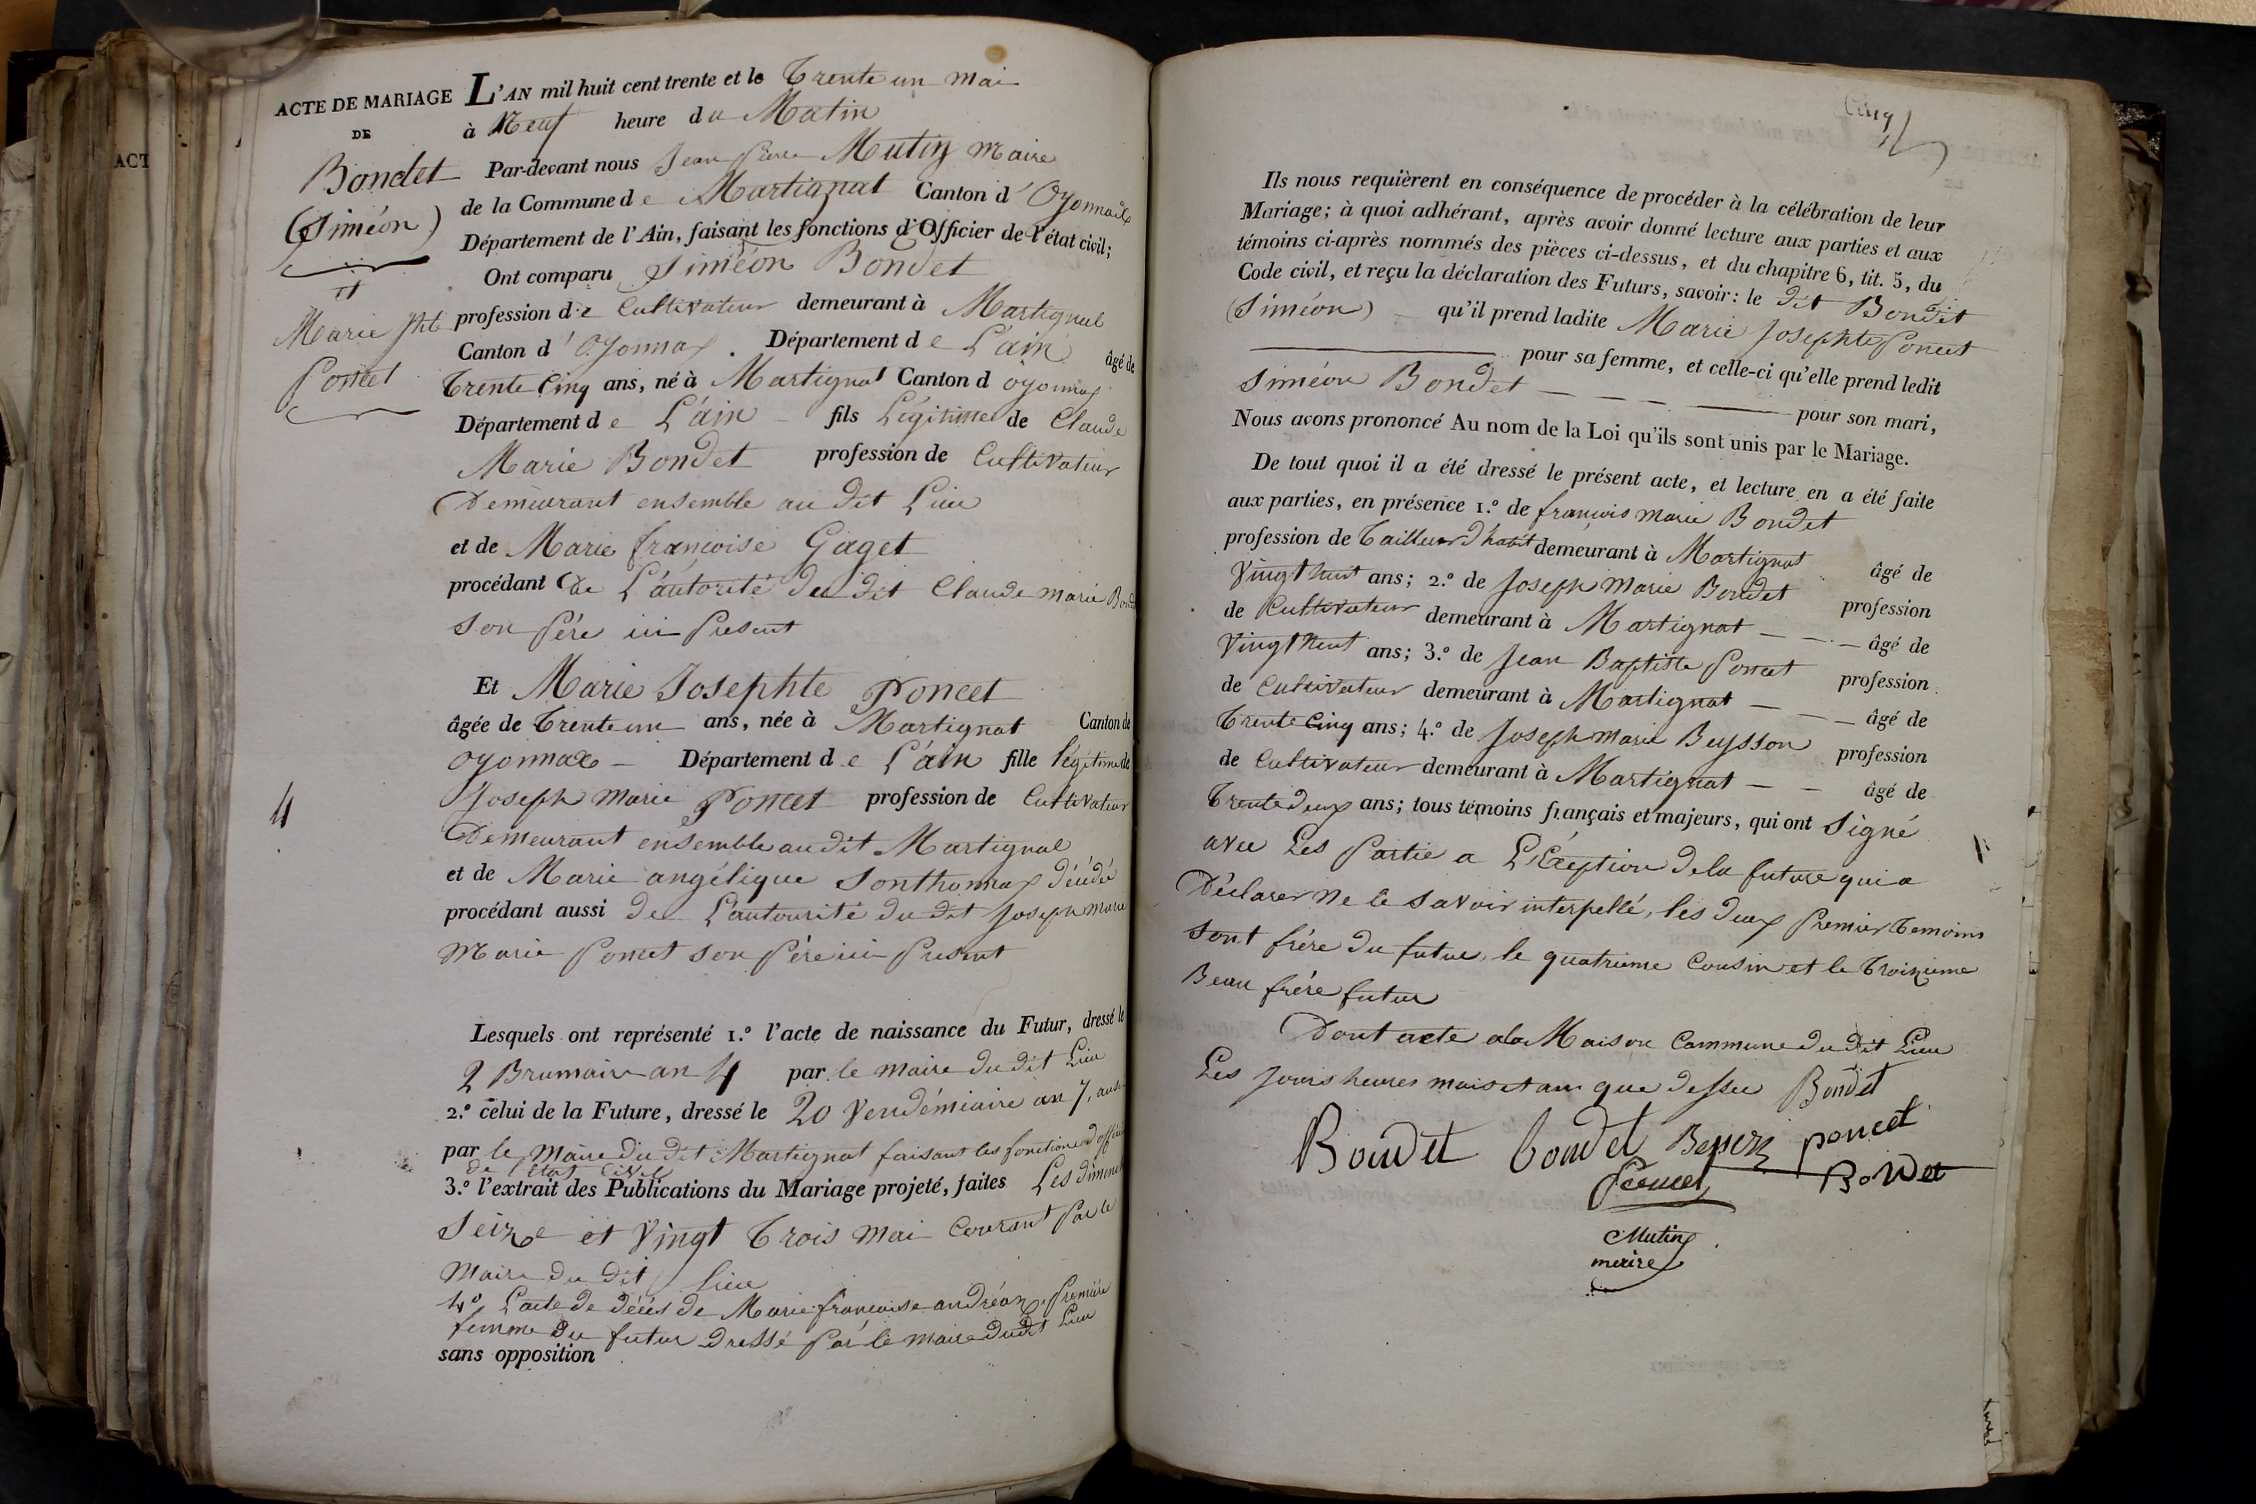 ACTE DE MARIAGE
DE
Bondet
(Siméon)
et
Marie Jhte
Poncet
ACT
4
L'AN mil huit cent trente et le Trente un mai
à Neuf heure du Matin
Par-devant nous Jean Pierre Mutin Maire
de la Commune de Martignat Canton d'Oyonnax
Département de l'Ain, faisant les fonctions d'Officier de l'état civil;
Ont comparu Siméon Bondet
profession de Cultivateur demeurant à Martignat
Canton d'Oyonnax. Département de L'ain âgé de
Trente Cinq ans, né à Martignat Canton d oyonnax
Département de L'ain fils Légitime de Claude
Marie Bondet profession de Cultivateur
Demeurant ensemble au dit Lieu
et de Marie françoise Gaget
procédant De L'autorité du dit Claude marie Bondet
son Pére ici Present
Et Marie Josephte Poncet
âgée de Trente un ans, née à Martignat Canton de
oyonnax Département de L'ain fille légitime de
Joseph Marie Poncet profession de Cultivateur
Demeurant ensemble au dit Martignat
et de Marie angélique Sonthonnax décédée
procédant aussi de L'autourité du dit Joseph marie
Marie Poncet son Pére ici Present
Lesquels ont représenté 1.º l'acte de naissance du Futur, dressé le
2 Brumaire an 4 par le maire du dit Lieu
2.º celui de la Future, dressé le 20 Vendémiaire an 7, aussi
par le Maire du dit Martignat faisant les fonctions d'officier
de l'état civil
3.º l'extrait des Publications du Mariage projeté, faites Les dimanches
Seize et Vingt Trois mai Courant Par le
Maire du dit lieu
4º L'acte de décés de Marie françoise andréan Premiére
femme du futur dressé Par le maire dudit Lieu
sans opposition
Cinq
Ils nous requièrent en conséquence de procéder à la célébration de leur
Mariage; à quoi adhérant, après avoir donné lecture aux parties et aux
témoins ci-après nommés des pièces ci-dessus, et du chapitre 6, tit. 5, du
Code civil, et reçu la déclaration des Futurs, savoir: le dit Bondet
(Siméon) qu'il prend ladite Marie Josephte Poncet
pour sa femme, et celle-ci qu'elle prend ledit
Siméon Bondet pour son mari,
Nous avons prononcé Au nom de la Loi qu'ils sont unis par le Mariage.
De tout quoi il a été dressé le présent acte, et lecture en a été faite
aux parties, en présence 1.º de françois marie Bondet
profession de Tailleur d'habit demeurant à Martignat âgé de
Vingt huit ans; 2.º de Joseph Marie Bondet profession
de Cultivateur demeurant à Martignat âgé de
Vingt Neuf ans; 3.º de Jean Baptiste Poncet profession
de Cultivateur demeurant à Martignat âgé de
Trente Cinq ans; 4.º de Joseph marie Beysson profession
de Cultivateur demeurant à Martignat âgé de
Trente deux ans; tous témoins français et majeurs, qui ont Signé
avec Les Partie a L'Exéption de la future qui a
Déclarer Ne le savoir interpellé, les deux Premier Temoins
sont frére du futur, le quatrieme Cousin et le Troizieme
Beau frére futur
Dont acte a la Maison Commune du dit Lieu
Les Jours heures mois et an que dessu Bondet
Bondet bondet Besson poncet
Poncet Bondet
Mutin
maire